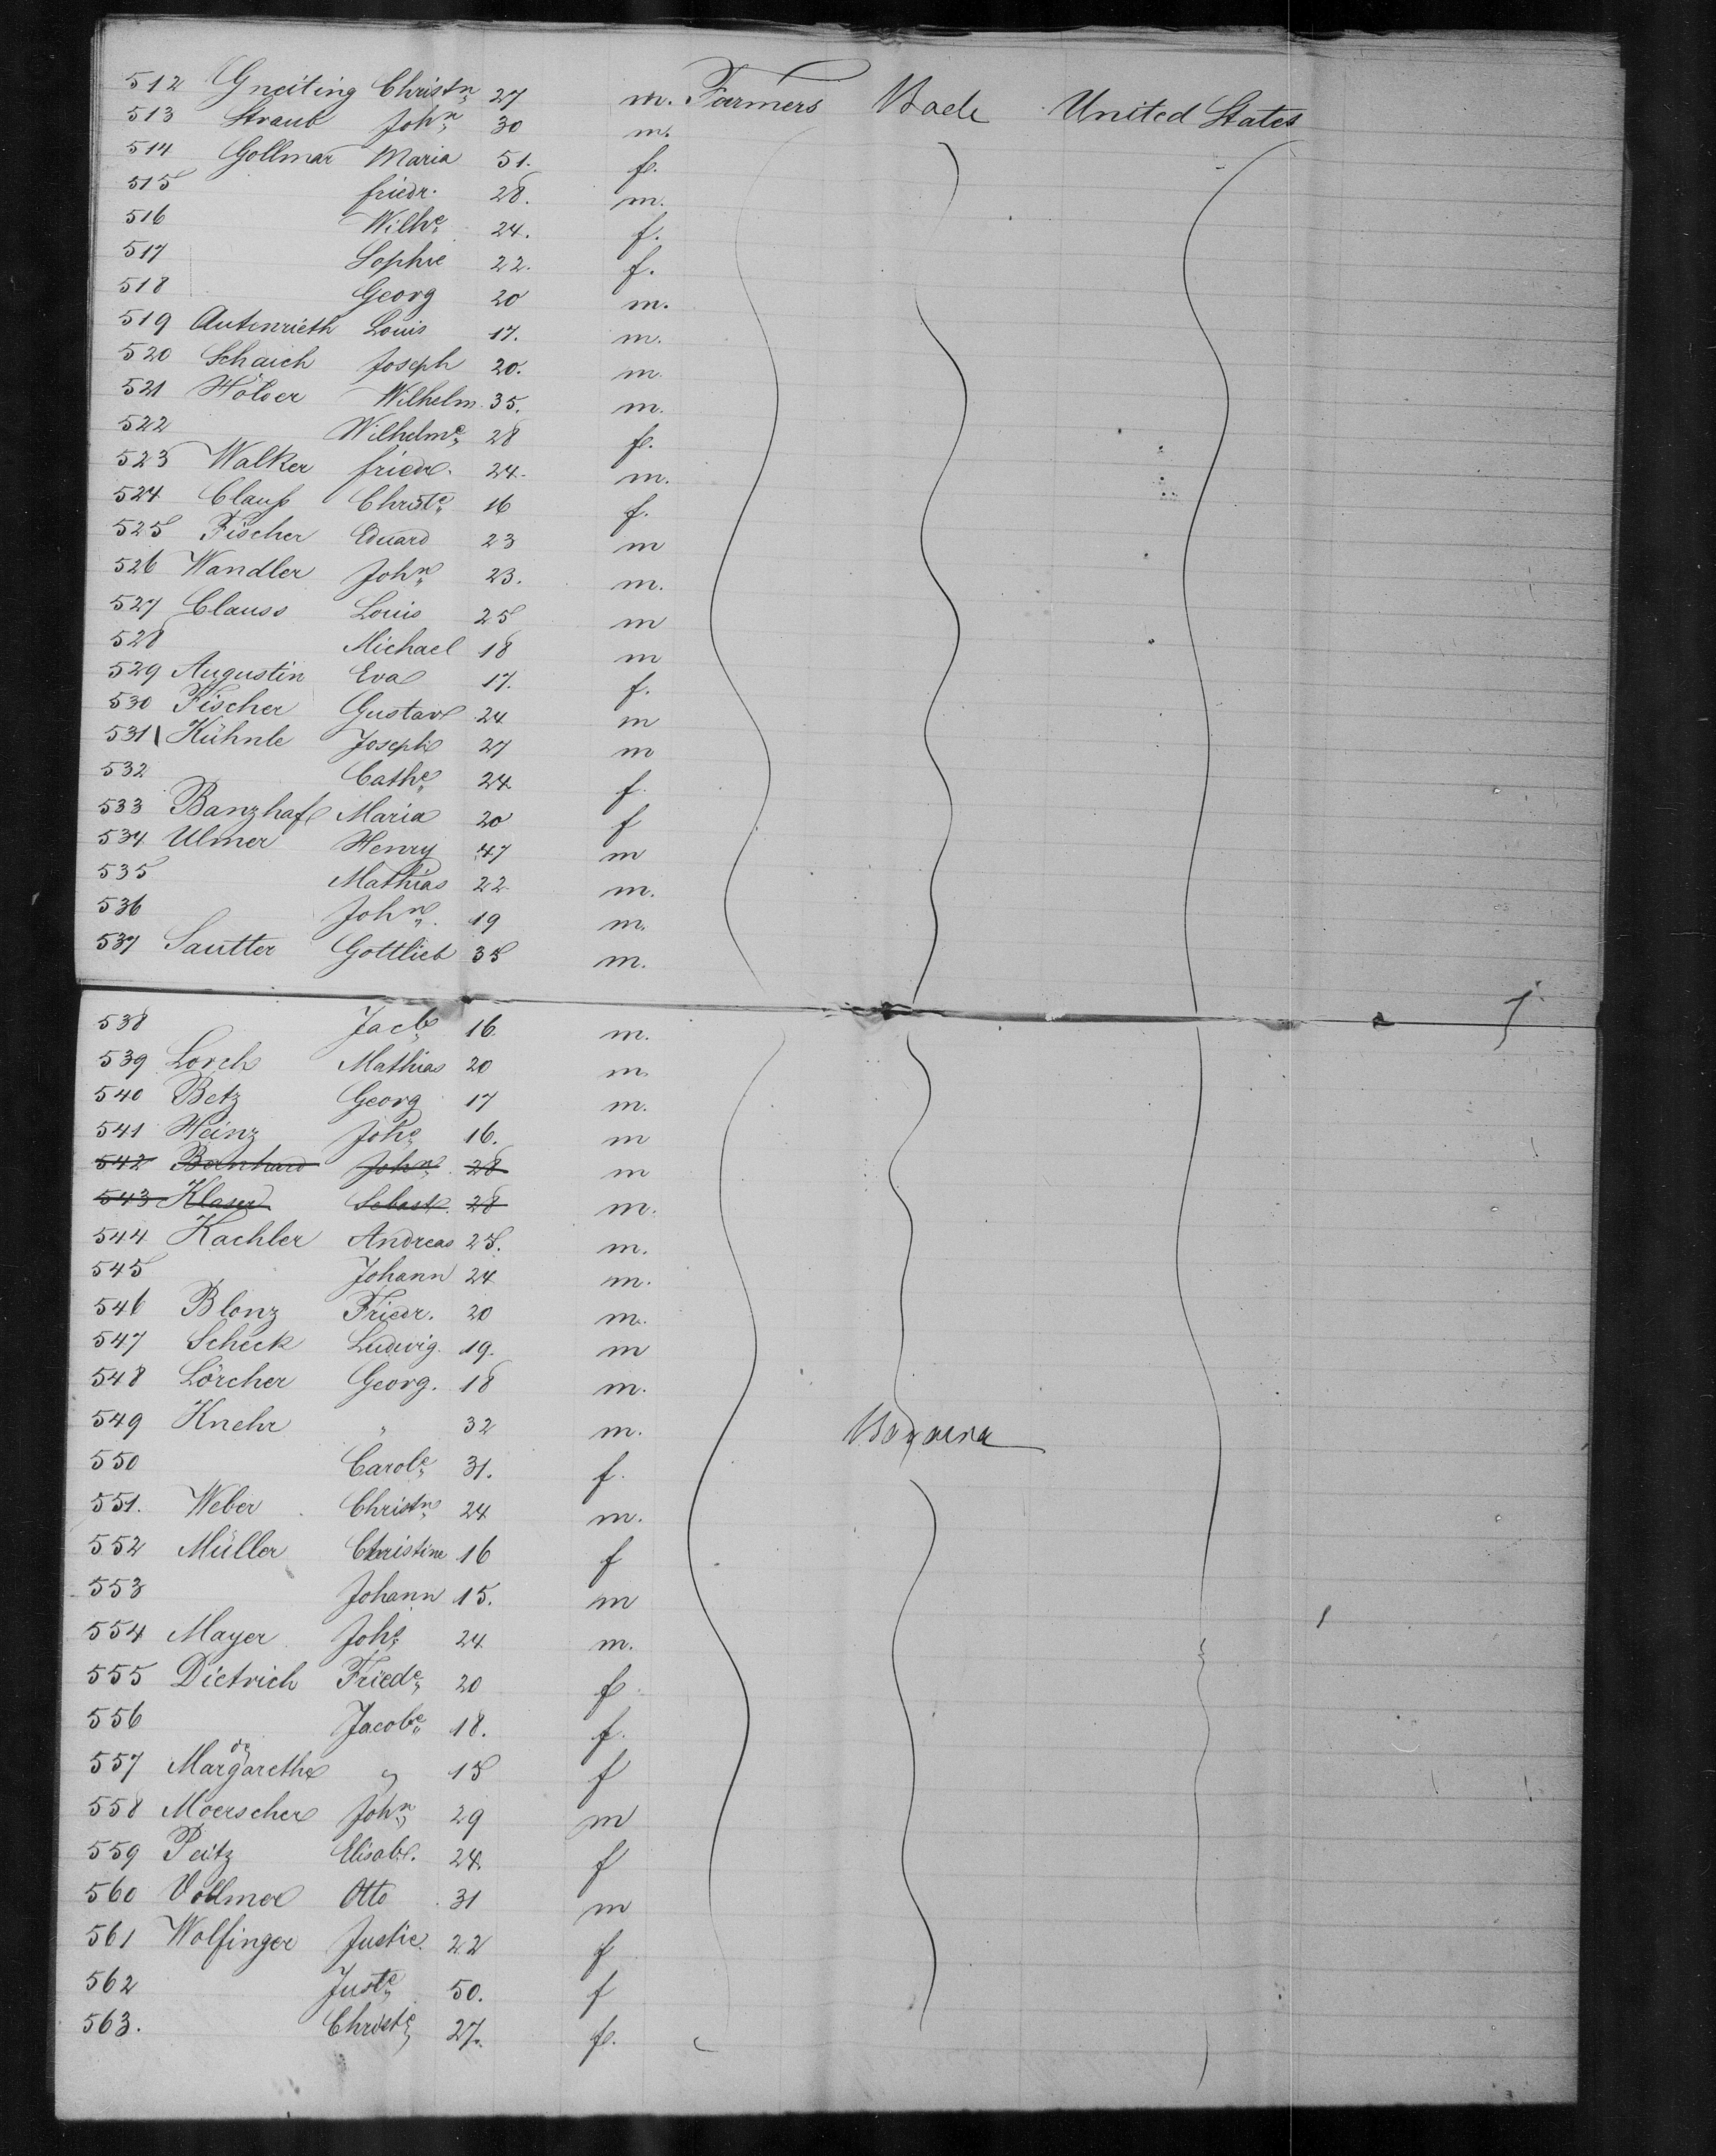 512 Gneiting Christn 27 m. Farmers Bade United States
513 Straub John 30 m.
514 Gollmar Maria 51. f.
515 friedr. 28. m.
516 Wilhe 24. f.
517 Sophie 22. f.
518 Georg 20 m.
519 Autenrieth Louis 17. m.
520 Schaich Joseph 20. m.
521 Hölder Wilhelm 35. m.
522 Wilhelme 28 f.
523 Walker friedr. 24. m.
524 Clauß Christe 16 f.
525 Fischer Eduard 23 m
526 Wandler John 23. m.
527 Clauss Louis 25 m
528 Michael 18 m
529 Augustin Eva 17. f.
530 Fischer Gustav 24 m
531 Kühnle Joseph 27 m
532 Cathe 24 f.
533 Banzhaf Maria 20 f
534 Ulmer Henry 47 m
535 Mathias 22 m.
536 John 19 m.
537 Sautter Gottlieb 35 m.
538 Jacb 16. m.
539 Lorch Mathias 20 m.
540 Betz Georg 17 m.
541 Heinz Johs 16. m
542 Bernhard John 28 m
543 Klaser Sebast. 28 m.
544 Kachler Andreas 25. m.
545 Johann 24 m.
546 Blonz Friedr. 20 m.
547 Scheck Ludwig. 19. m
548 Lörcher Georg. 18 m.
549 Knehr " 32 m. Bavaria
550 Carole 31. f.
551. Weber Christn 24 m.
552 Müller Christine 16 f
553 Johann 15. m
554 Mayer Johs 24 m.
555 Dietrich Friede 20 f
556 Jacobe 18. f.
557 Margarethe " 15 f
558 Moerscher John 29 m
559 Peitz Elisab. 24. f
560 Vollmer Otto 31 m
561 Wolfinger Justie. 22 f
562 Juste 50. f
563. Christe 27. f.